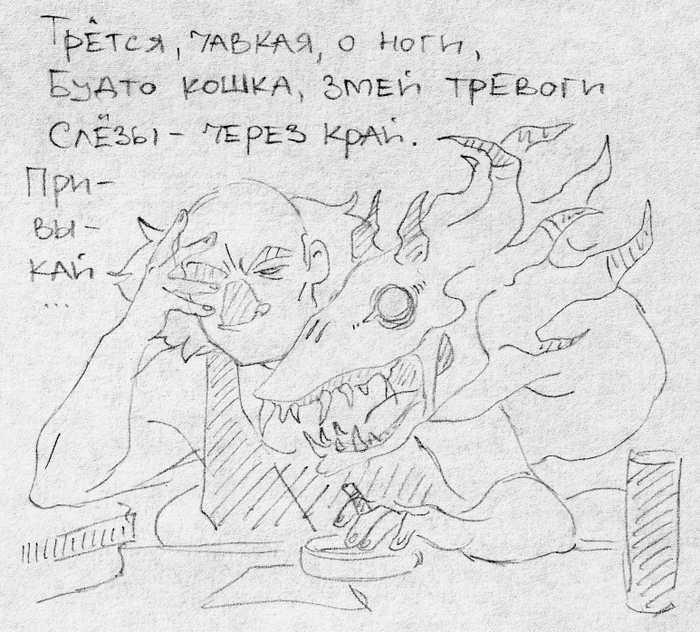 Трётся, чавкая, о ноги,
Будто кошка, змей тревоги
Слёзы – через край.
При-
вы-
кай
...